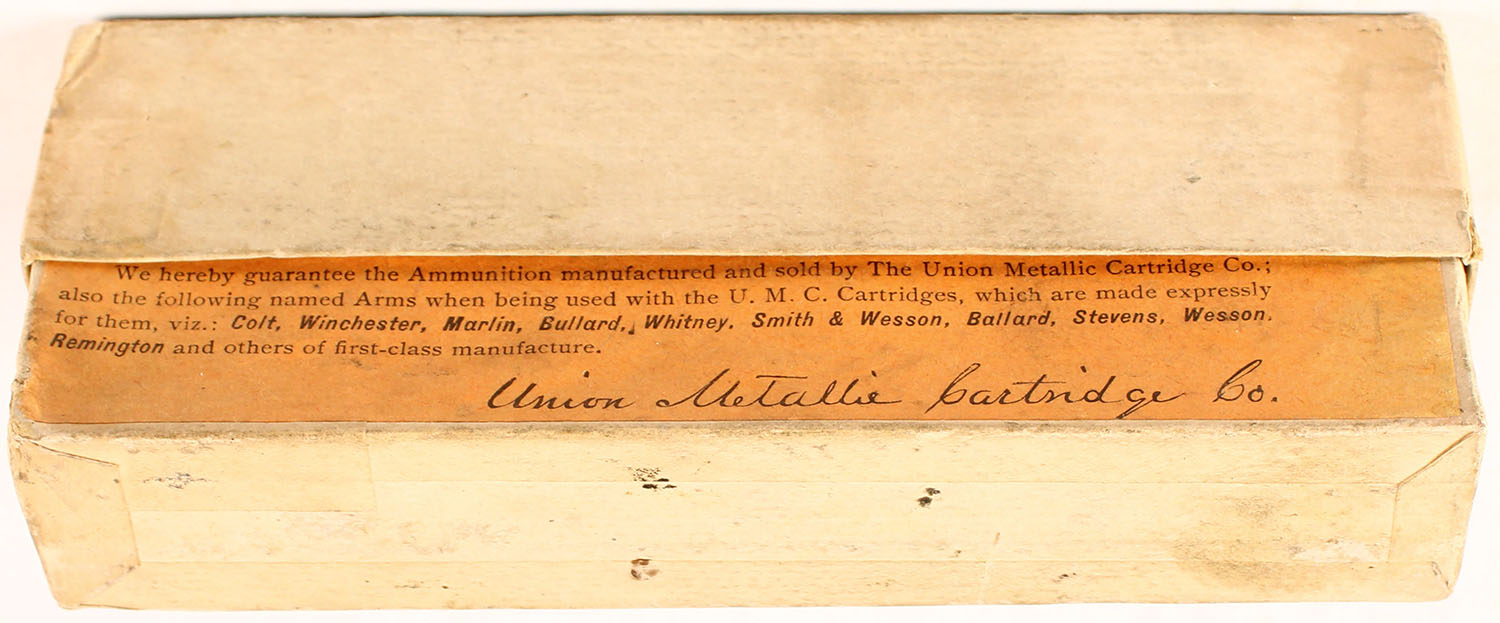 We hereby guarantee the Ammunition manufactured and sold by The Union Metallic Cartridge Co.;
also the following named Arms when being used with the U. M. C. Cartridges, which are made expressly
for them, viz.: Colt, Winchester, Marlin, Bullard, Whitney, Smith & Wesson, Ballard, Stevens, Wesson,
Remington and others of first-class manufacture.
Union Metallic Cartridge Co.